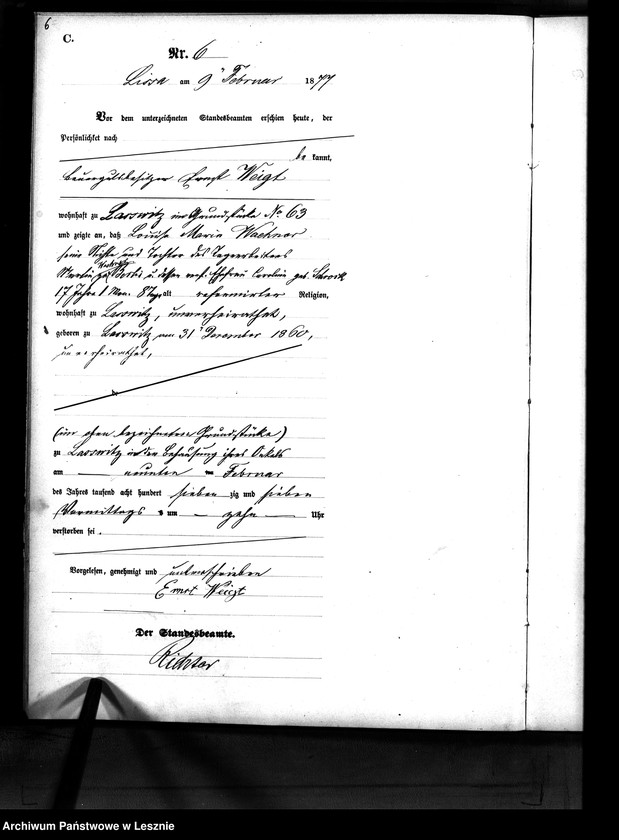 6
C.
Nr. 6
Lissa am 9ⁿ Februar 1877
Vor dem unterzeichneten Standesbeamten erschien heute, der
Persönlichkeit nach
be kannt,
Bauergutsbesitzer Ernst Weigt
wohnhaft zu Lasswitz im Grundstücke No 63
und zeigte an, daß Louise Maria
seine Nichte und Tochter des Tagearbeiters
Martin u. dessen Ehefrau Caroline geb.
17 Jahre 1 Mon. 8 Tage alt reformirter Religion,
wohnhaft zu Lasswitz, unverheirathet,
geboren zu Lasswitz am 31ⁿ Dezember 1860,
unverheirathet,
zu
(im oben bezeichneten Grundstücke)
zu Lasswitz in der Behausung ihres Onkels
am — neunten — Februar
des Jahres tausend acht hundert sieben zig und sieben
Vormittags um — zehn — Uhr
verstorben sei.
Vorgelesen, genehmigt und unterschrieben
Ernst Weigt
Der Standesbeamte.
Richter
Archiwum Państwowe w Lesznie